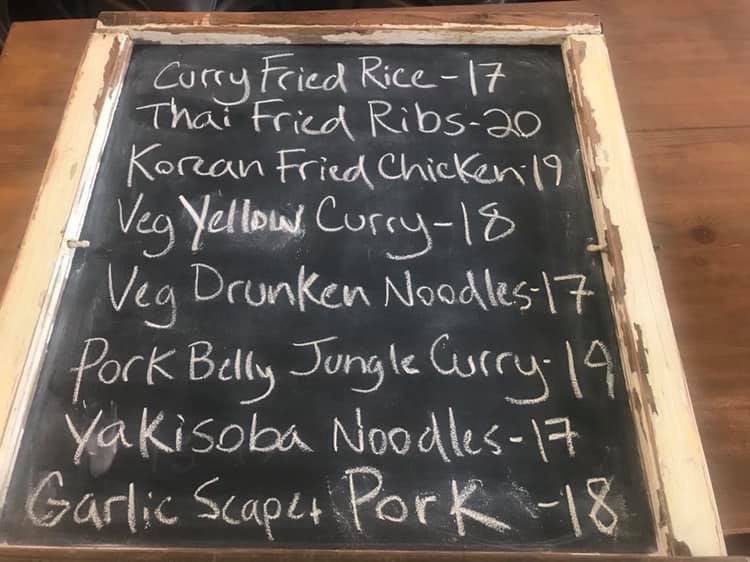 Curry Fried Rice - 17
Thai Fried Ribs - 20
Korean Fried Chicken - 19
Veg Yellow Curry - 18
Veg Drunken Noodles - 17
Pork Belly Jungle Curry - 19
Yakisoba Noodles - 17
Garlic Scape + Pork - 18